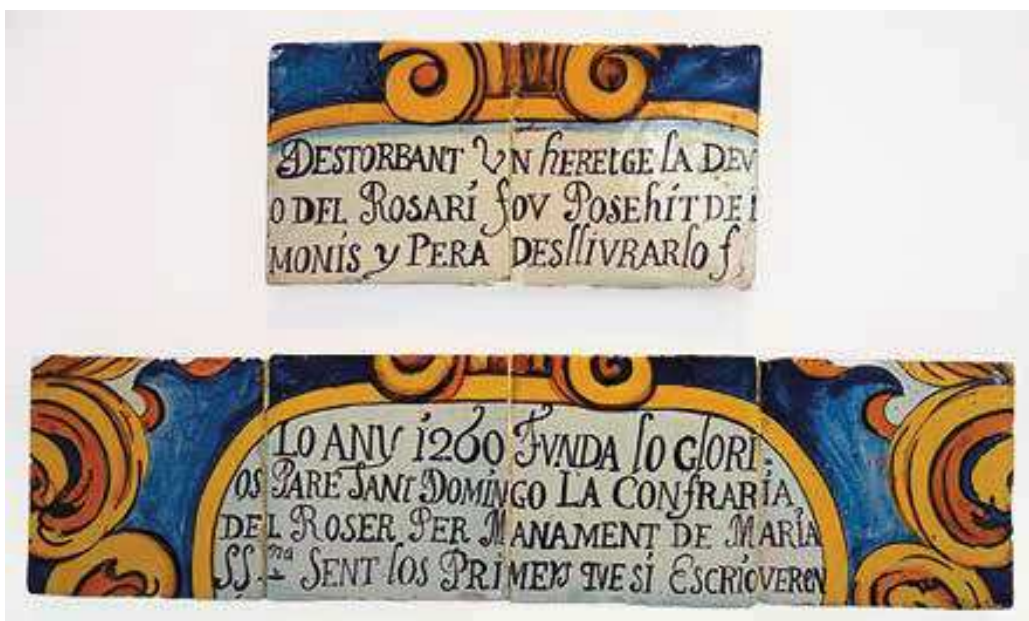 DESTORBANT VN hERETGE lA DEV
O DEL ROSARI fOV POSEhIT DE
MONIS y PERA DESllIVRARlO f
LO ANY 1260 FVNDA lO GlORI
OS PARE SANT DOMINGO LA CONfRARIA
DEL ROSER PER MANAMENT DE MARIA
SS.ᵐᵃ SENT lOS PRIMERS QVE SI ESCRIGVEREN